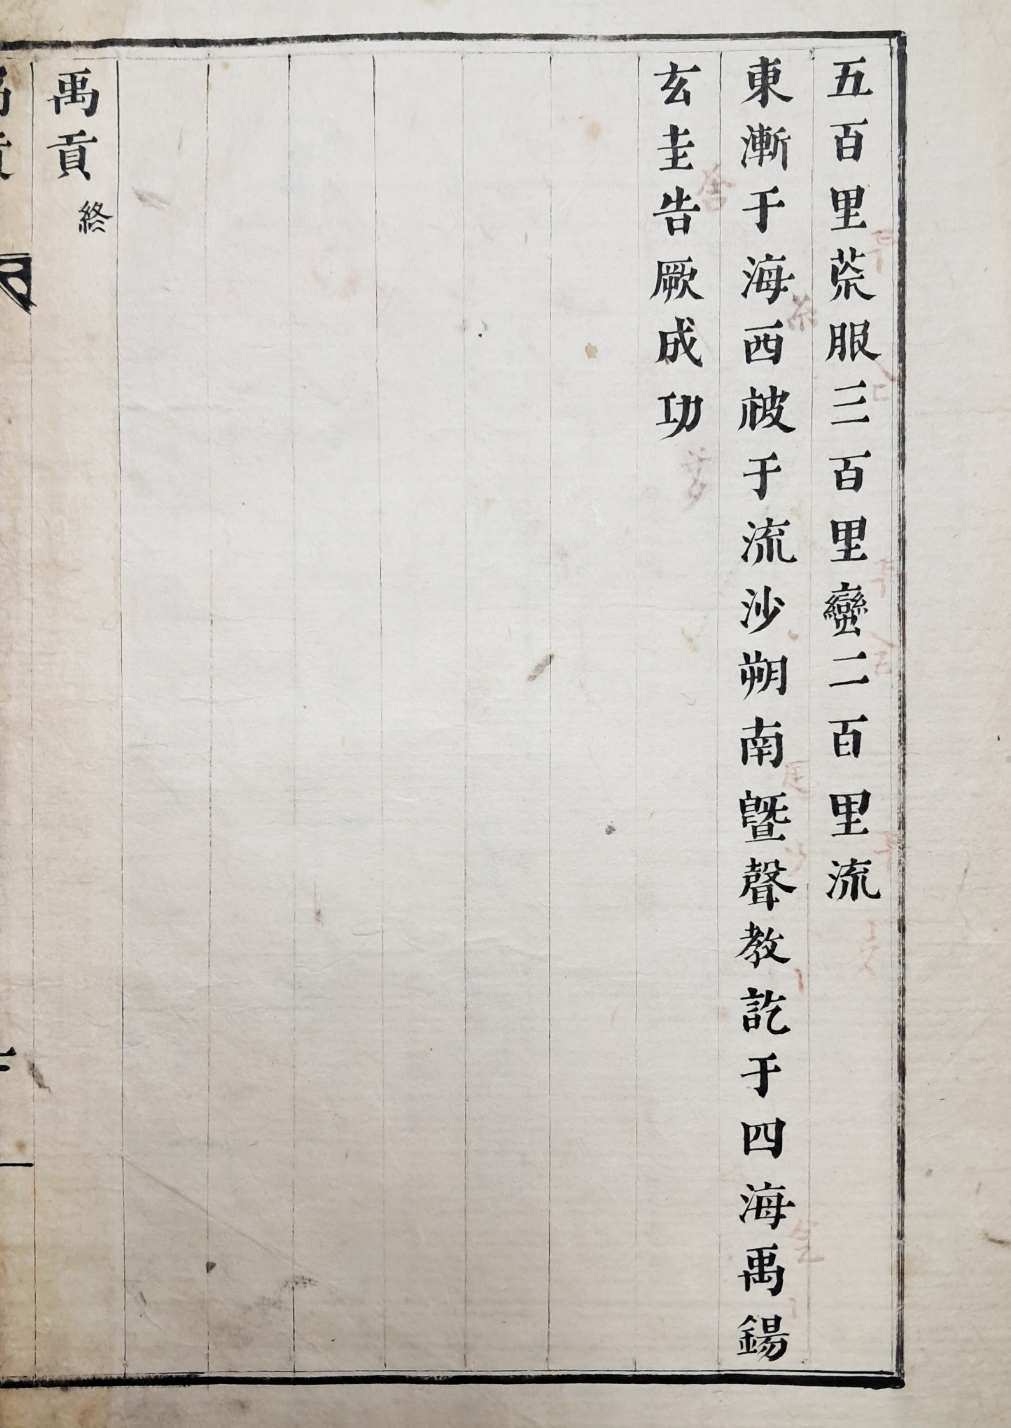 五百里荒服三百里蠻二百里流
東漸于海西被于流沙朔南暨聲教訖于四海禹錫
玄圭告厥成功
禹貢終